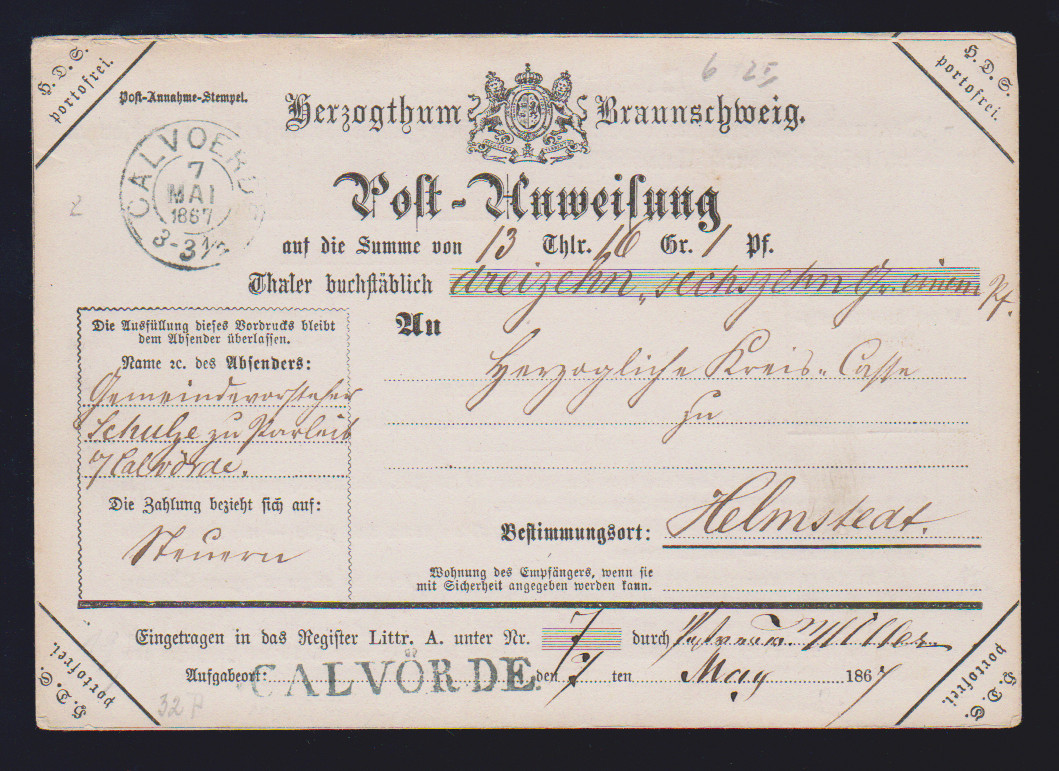 H. D. S.
portofrei.
H. D. S.
portofrei.
6 25
Post-Annahme-Stempel.
Herzogthum Braunschweig.
CALVOERDE
7
MAI
1867
3-3½
2
Post-Anweisung
auf die Summe von 13 Thlr. 16 Gr. 1 Pf.
Thaler buchstäblich dreizehn, sechszehn Gr. einem Pf.
An
Herzogliche Kreis-Casse
zu
Bestimmungsort: Helmstedt.
Wohnung des Empfängers, wenn sie
mit Sicherheit angegeben werden kann.
Die Ausfüllung dieses Vordrucks bleibt
dem Absender überlassen.
Name ꝛc. des Absenders:
Gemeindevorsteher
Schulze zu Parleib
a/Calvörde.
Die Zahlung bezieht sich auf:
Steuern
Eingetragen in das Register Littr. A. unter Nr. 7 durch Müller
Aufgabeort: CALVÖRDE. den 7 ten May 1867
H. D. S.
portofrei.
32 P
H. D. S.
portofrei.